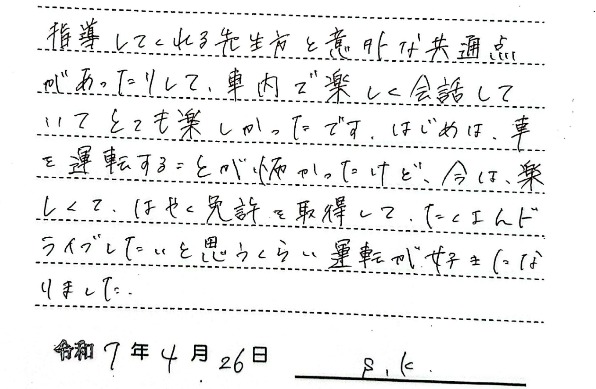 指導してくれる先生方と意外な共通点
があったりして、車内で楽しく会話して
いてとても楽しかったです。はじめは、車
を運転することが怖かったけど、今は、楽
しくて、はやく免許を取得して、たくさんド
ライブしたいと思うくらい運転が好きにな
りました。
令和7年4月26日 S.K.